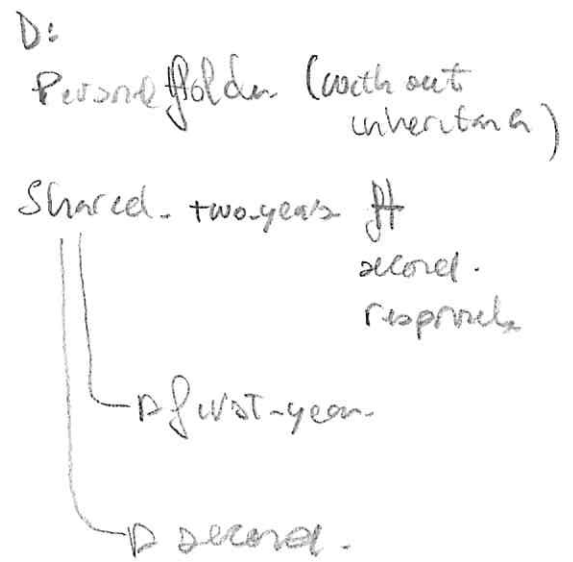 D:
Personal folder (without
inheritance)
Shared - two-years
second.
first-year
second.